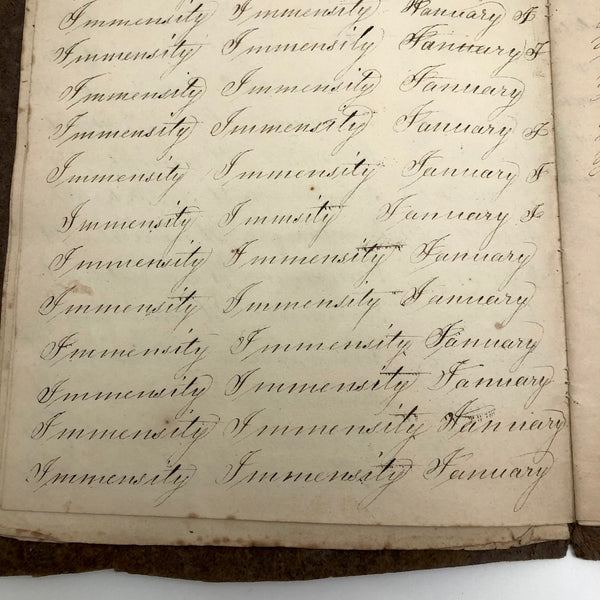 Immensity Immensity January J
Immensity Immensity January J
Immensity Immensity January
Immensity Immensity January J
Immensity Immensity January J
Immensity Immsity January J
Immensity Immensity January
Immensity Immensity January
Immensity Immensity January
Immensity Immensity January
Immensity Immensity January
Immensity Immensity January